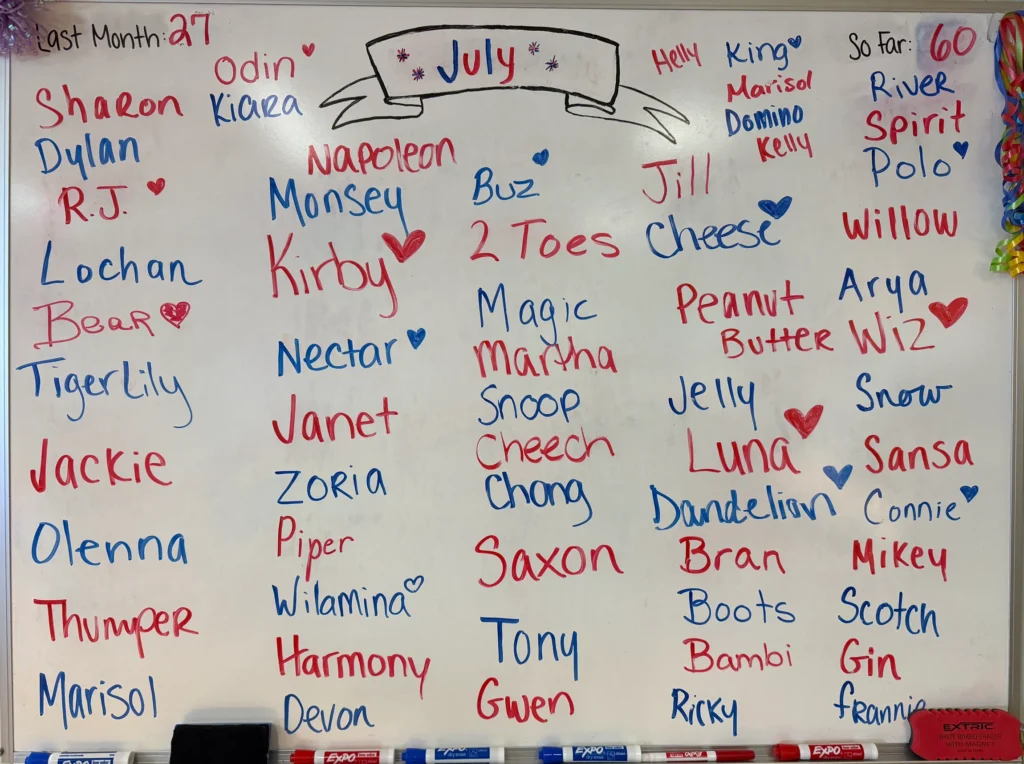 Last Month: 27
Odin
Kiara
Sharon
Dylan
R.J.
Lochan
Bear
Tigerlily
Jackie
Olenna
Thumper
Marisol
July
Napoleon
Monsey
Kirby
Nectar
Janet
Zoria
Piper
Wilamina
Harmony
Devon
Buz
2 Toes
Magic
Martha
Snoop
Cheech
Chong
Saxon
Tony
Gwen
Helly
King
Marisol
Domino
Kelly
Jill
Cheese
Peanut
Butter
Jelly
Luna
Dandelion
Bran
Boots
Bambi
Ricky
So Far: 60
River
Spirit
Polo
Willow
Arya
Wiz
Snow
Sansa
Connie
Mikey
Scotch
Gin
Frannie
EXPO
EXPO
EXPO
EXPO
EXPO
EXTRIC